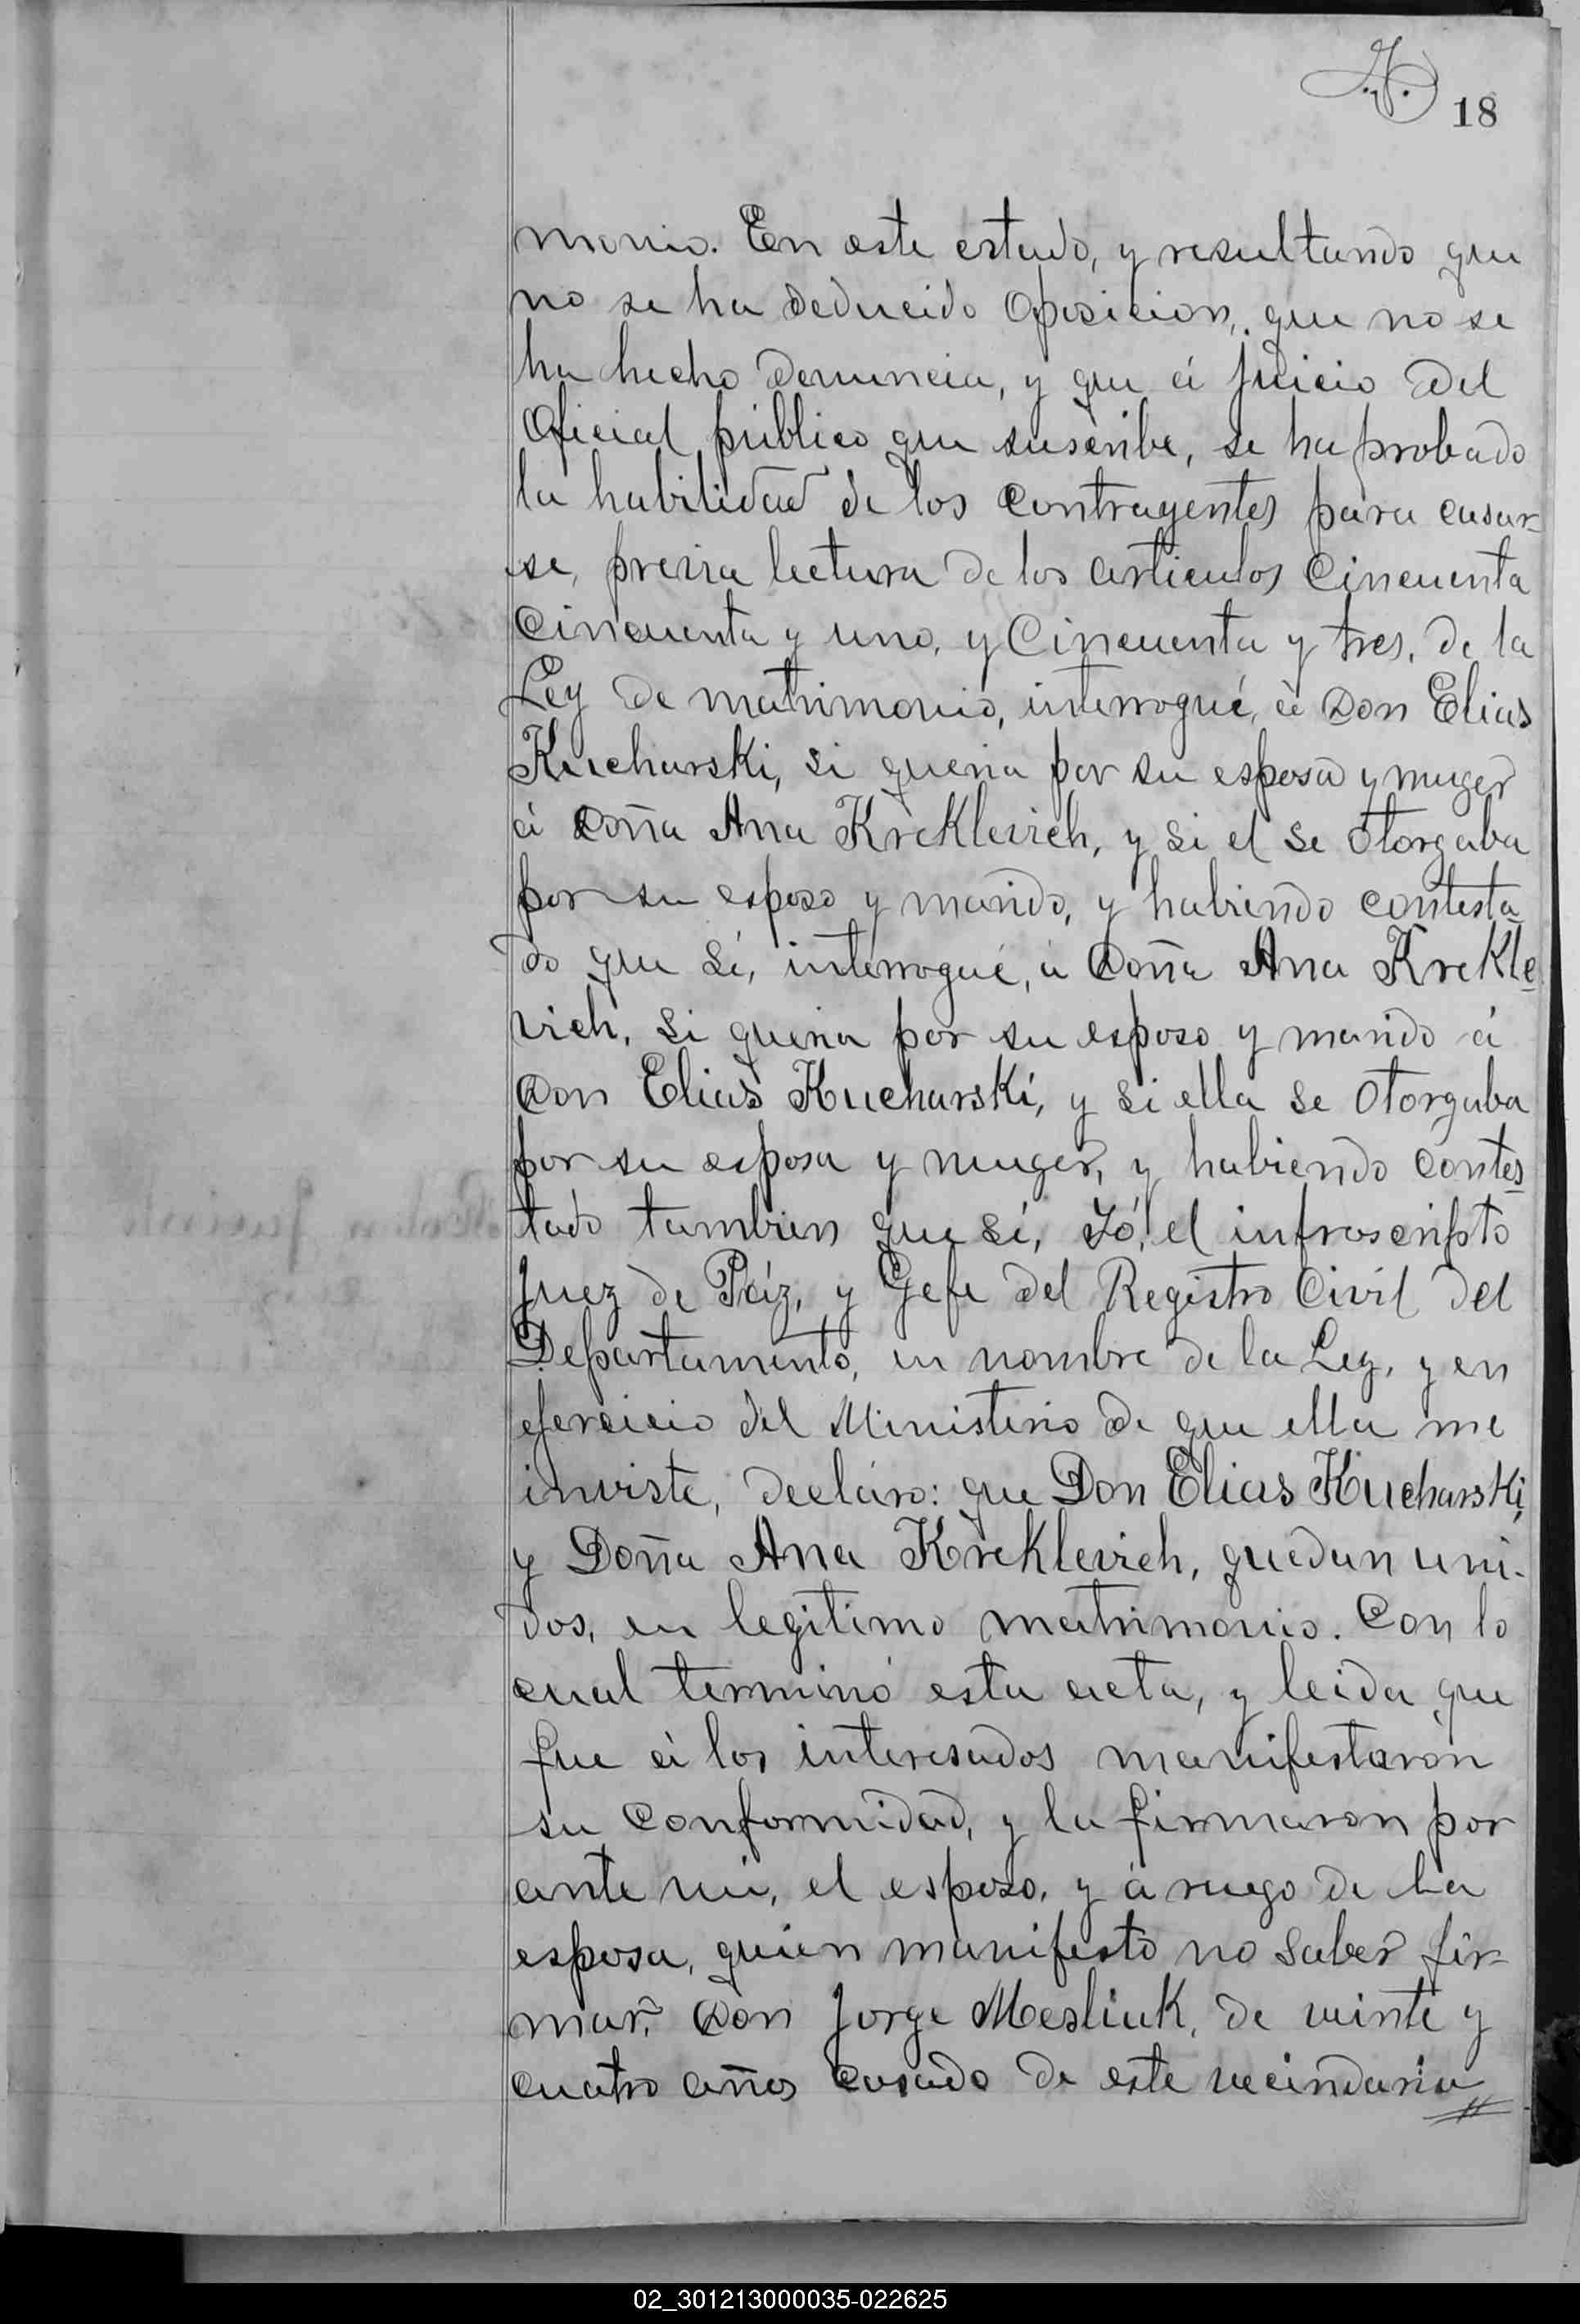 18
monio. En este estado, y resultando que
no se ha deducido oposicion, que no se
ha hecho denuncia, y que á juicio del
Oficial público que suscribe, se ha probado
la habilidad de los contragentes para casar-
se, previa lectura de los articulos Cincuenta
Cincuenta y uno, y Cincuenta y tres, de la
Ley de matrimonio, interrogué, á Don Elias
Kucharski, si queria por su esposa y muger
á Doña Ana Kreklevich, y si el se otorgaba
por su esposo y marido, y habiendo contesta
do que sí, interrogué, á Doña Ana Krekle
vich, si queria por su esposo y marido á
Don Elias Kucharski, y si ella se otorgaba
por su esposa y muger, y habiendo contes
tado tambien que sí, Yó, el infrascripto
Juez de Páz, y Gefe del Registro Civil del
Departamento, en nombre de la Ley, y en
ejercicio del Ministerio de que ella me
inviste, decláro: que Don Elias Kucharski,
y Doña Ana Kreklevich, quedan uni-
dos, en legitimo matrimonio. Con lo
cual terminó esta acta, y leida que
fue á los interesados manifestaron
su conformidad, y la firmaron por
ante mi, el esposo, y á ruego de la
esposa, quien manifesto no saber fir-
mar, Don Jorge Mesliuk, de veinte y
cuatro años casado de este vecindario
02_301213000035-022625